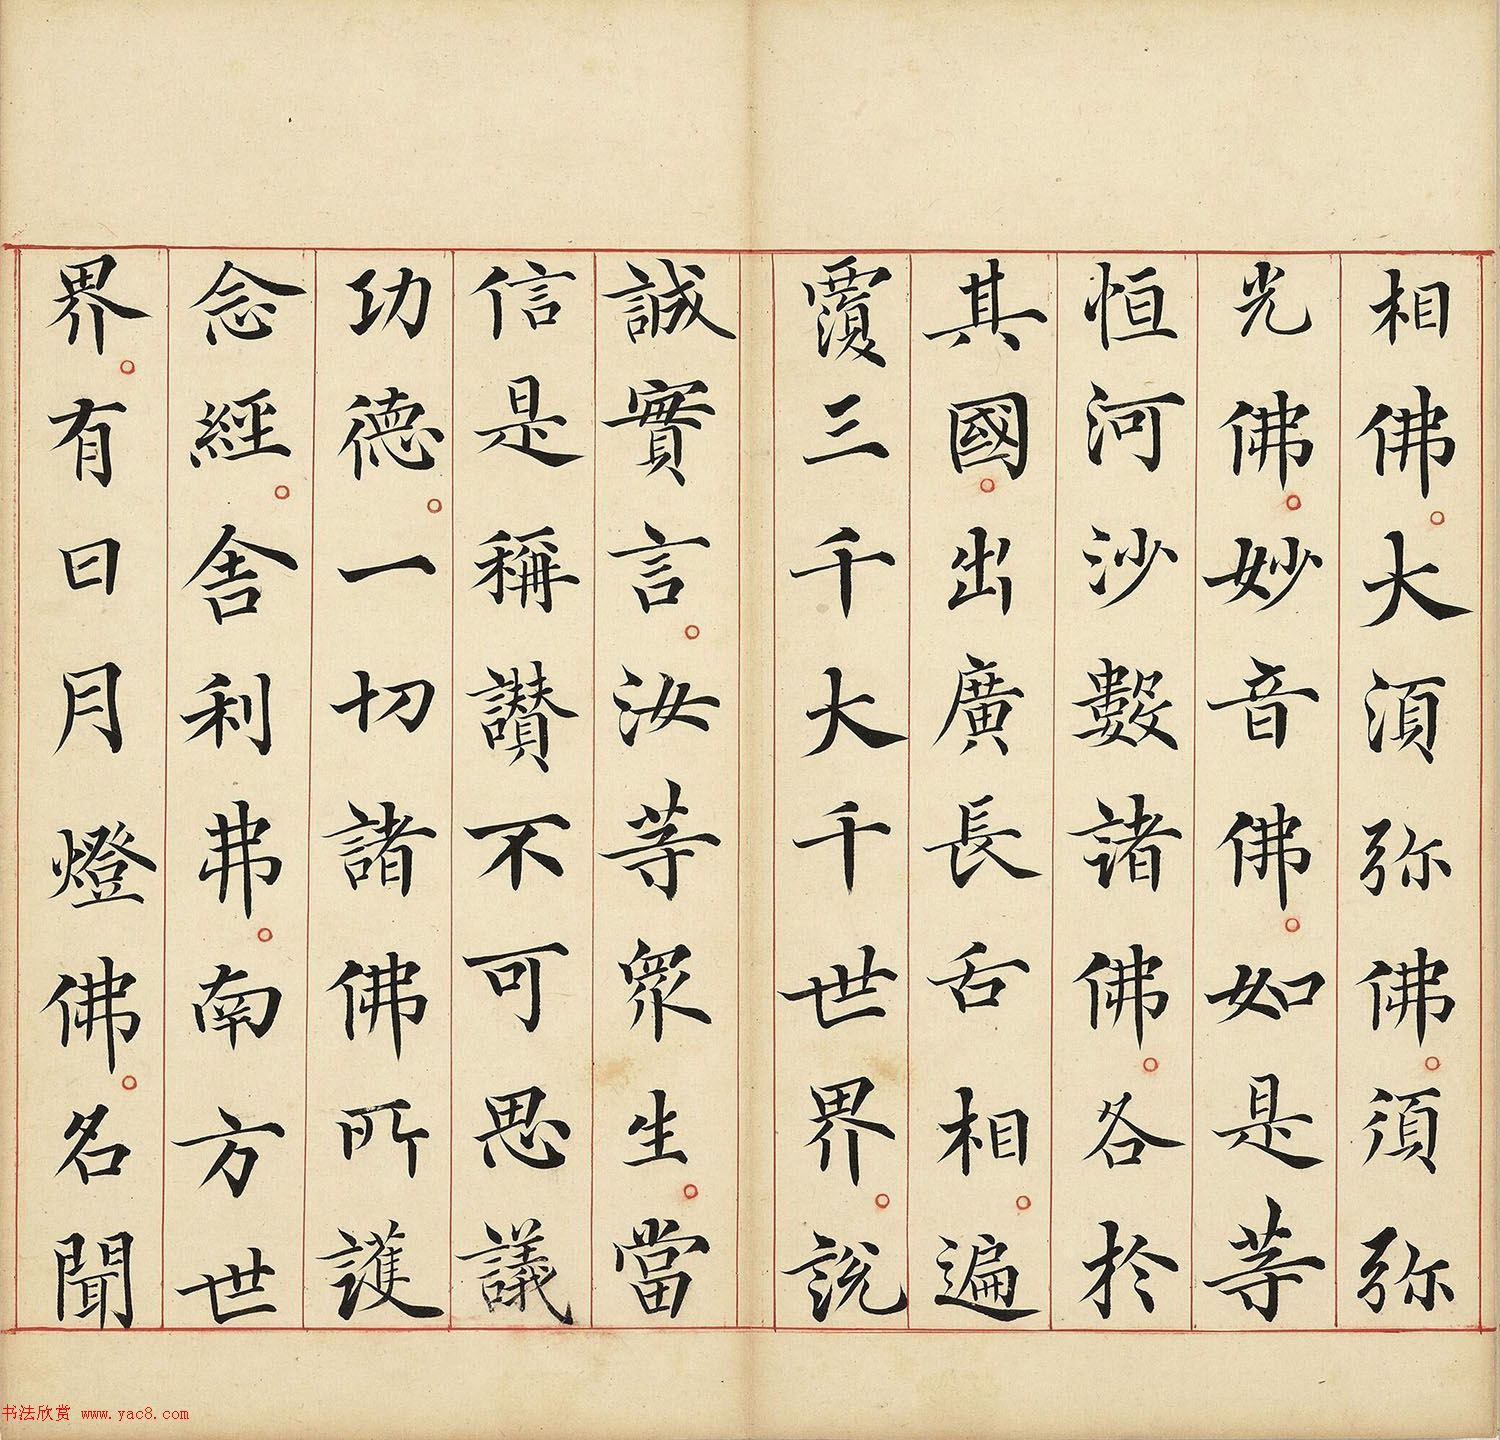 相佛。大須弥佛。須弥
光佛。妙音佛。如是等
恒河沙數諸佛。各於
其國。出廣長舌相。遍
覆三千大千世界。說
誠實言。汝等眾生。當
信是稱讃不可思議
功德。一切諸佛所護
念經。舍利弗。南方世
界。有日月燈佛。名聞
书法欣赏 www.yac8.com